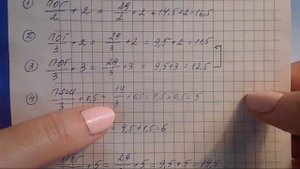 ① ПОГ/2 + 2 = 29/2 + 2 = 14,5+2=16,5
② ПОГ/3 + 2 = 29/3 + 2 = 9,5+2 = 11,5
③ ПОГ/3 + 3 = 29/3 + 3 = 9,5+3 = 12,5
④ /3 + 0,5 = /3 + 0,5 = 4,5+0,5 = 5
= 4,5+1,5=6
ПОГ/3 + 5 = 29/3 + 5 = 9,5+5 = 14,5